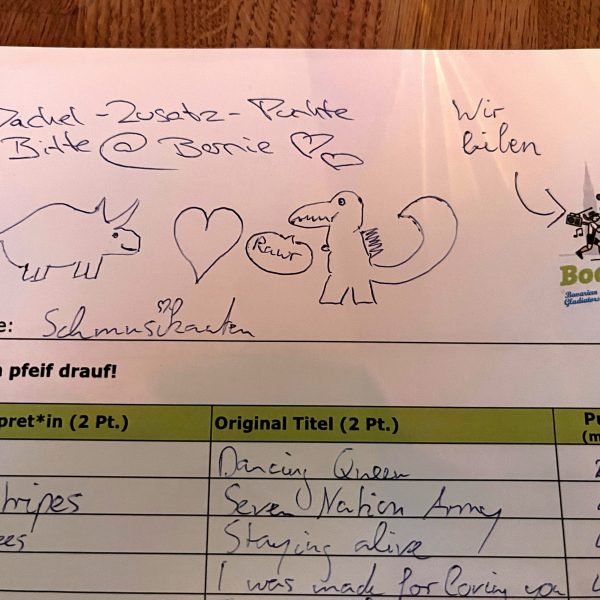 Dackel-Zusatz-Punkte
Bitte @ Bernie
Wir
Rawr
Boo
Bavarian
Gladiators
e: Schmusikaaten
pfeif drauf!
pret*in (2 Pt.) Original Titel (2 Pt.) Pu
(m
Dancing Queen 2
tripes Seven Nation Army
ees Staying alive
I was made for loving you